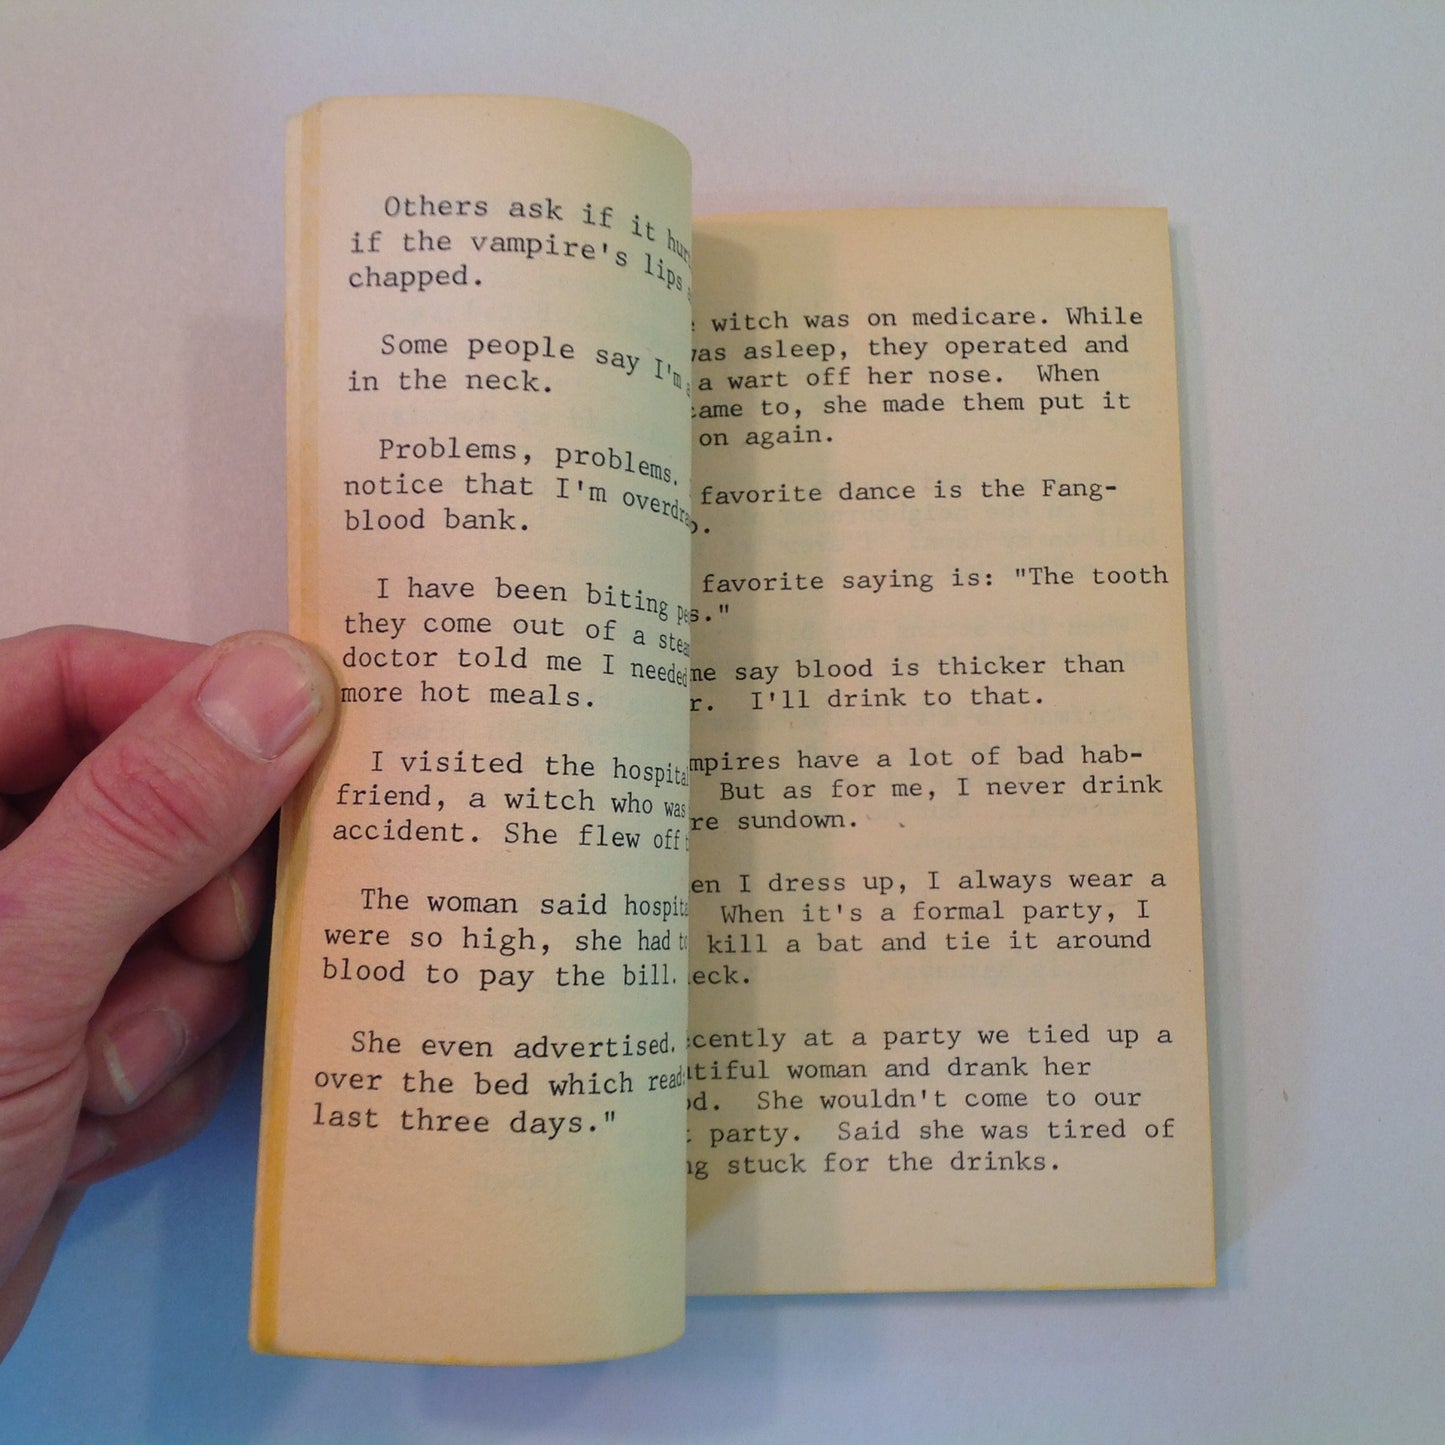 Others ask if it
if the vampire's lips
chapped.
Some people say I'm
in the neck.
Problems, problems.
notice that I'm
blood bank.
I have been biting
they come out of a
doctor told me I needed
more hot meals.
I visited the
friend, a witch who was
accident. She flew off
The woman said
were so high, she had
blood to pay the bill.
She even advertised.
over the bed which
last three days."
witch was on medicare. While
asleep, they operated and
a wart off her nose. When
to, she made them put it
on again.
favorite dance is the Fang-
favorite saying is: "The tooth
say blood is thicker than
I'll drink to that.
have a lot of bad hab-
But as for me, I never drink
sundown.
I dress up, I always wear a
When it's a formal party, I
kill a bat and tie it around
at a party we tied up a
woman and drank her
She wouldn't come to our
party. Said she was tired of
stuck for the drinks.